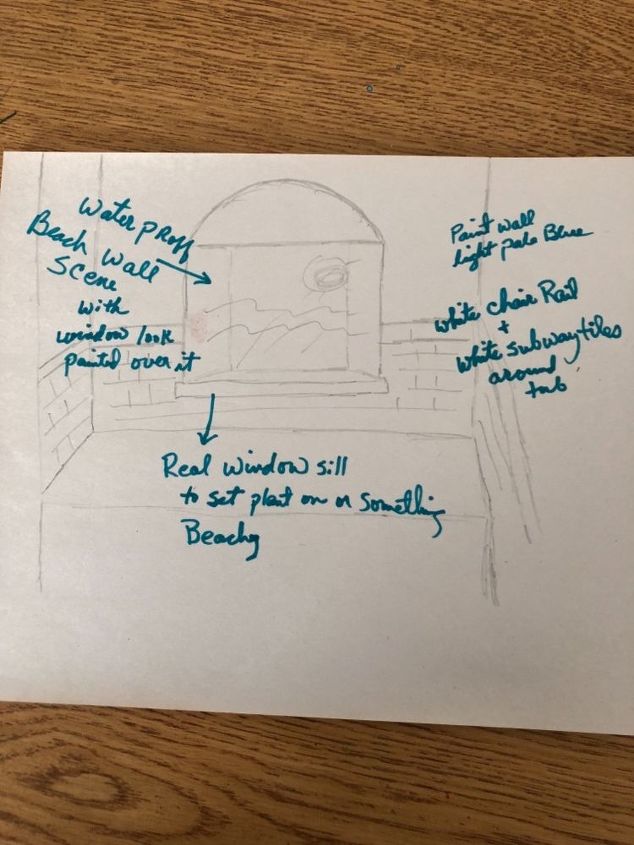 Water proff
Beach wall
Scene
with
window look
painted over it
Paint wall
light pale Blue
white chair Rail
+
white subway tiles
around
tub
Real window sill
to set plant on or something
Beachy